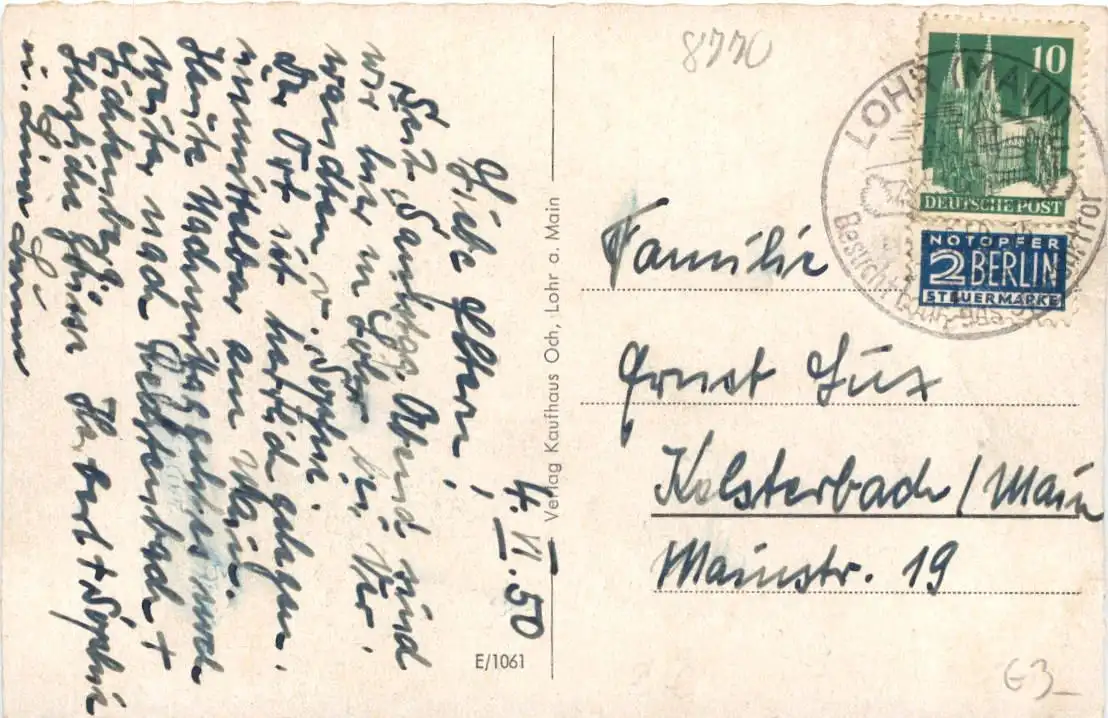 4. VI. 50
Liebe Eltern!
Seit Samstag Abend sind
wir hier in Lohr bei Ver-
wandten v. Sophie.
Der Ort ist herrlich gelegen,
unmittelbar am Main.
Heute Nachmittag geht es noch
weiter nach
Herzliche Grüsse Herbert + Sophie
8770
10
DEUTSCHE POST
NOTOPFER
2 BERLIN
STEUERMARKE
LOHR (MAIN)
Besucht
Familie
Ernst Lux
Kelsterbach / Main
Mainstr. 19
Verlag Kaufhaus Och, Lohr a. Main
E/1061
63-